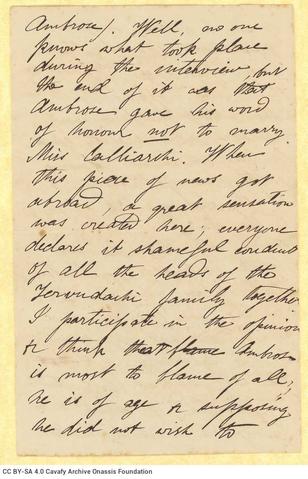 Ambrose). Well, no one
knows what took place
during the interview, but
the end of it was that
Ambrose gave his word
of honour not to marry
Miss Calliarchi. When
this piece of news got
abroad, a great sensation
was created here; everyone
declares it shameful conduct
of all the heads of the
family together
I participate in the opinion
& think that blame Ambrose
is most to blame of all;
he is of age & supposing
he did not wish to
CC BY-SA 4.0 Cavafy Archive Onassis Foundation